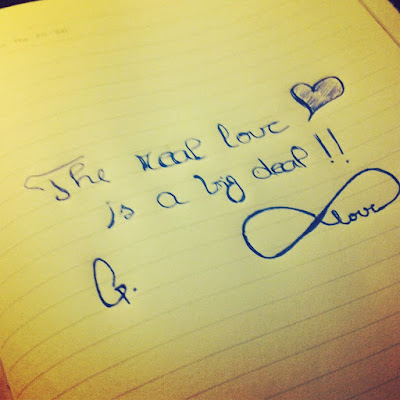 The real love
is a big deal !!
love
G.